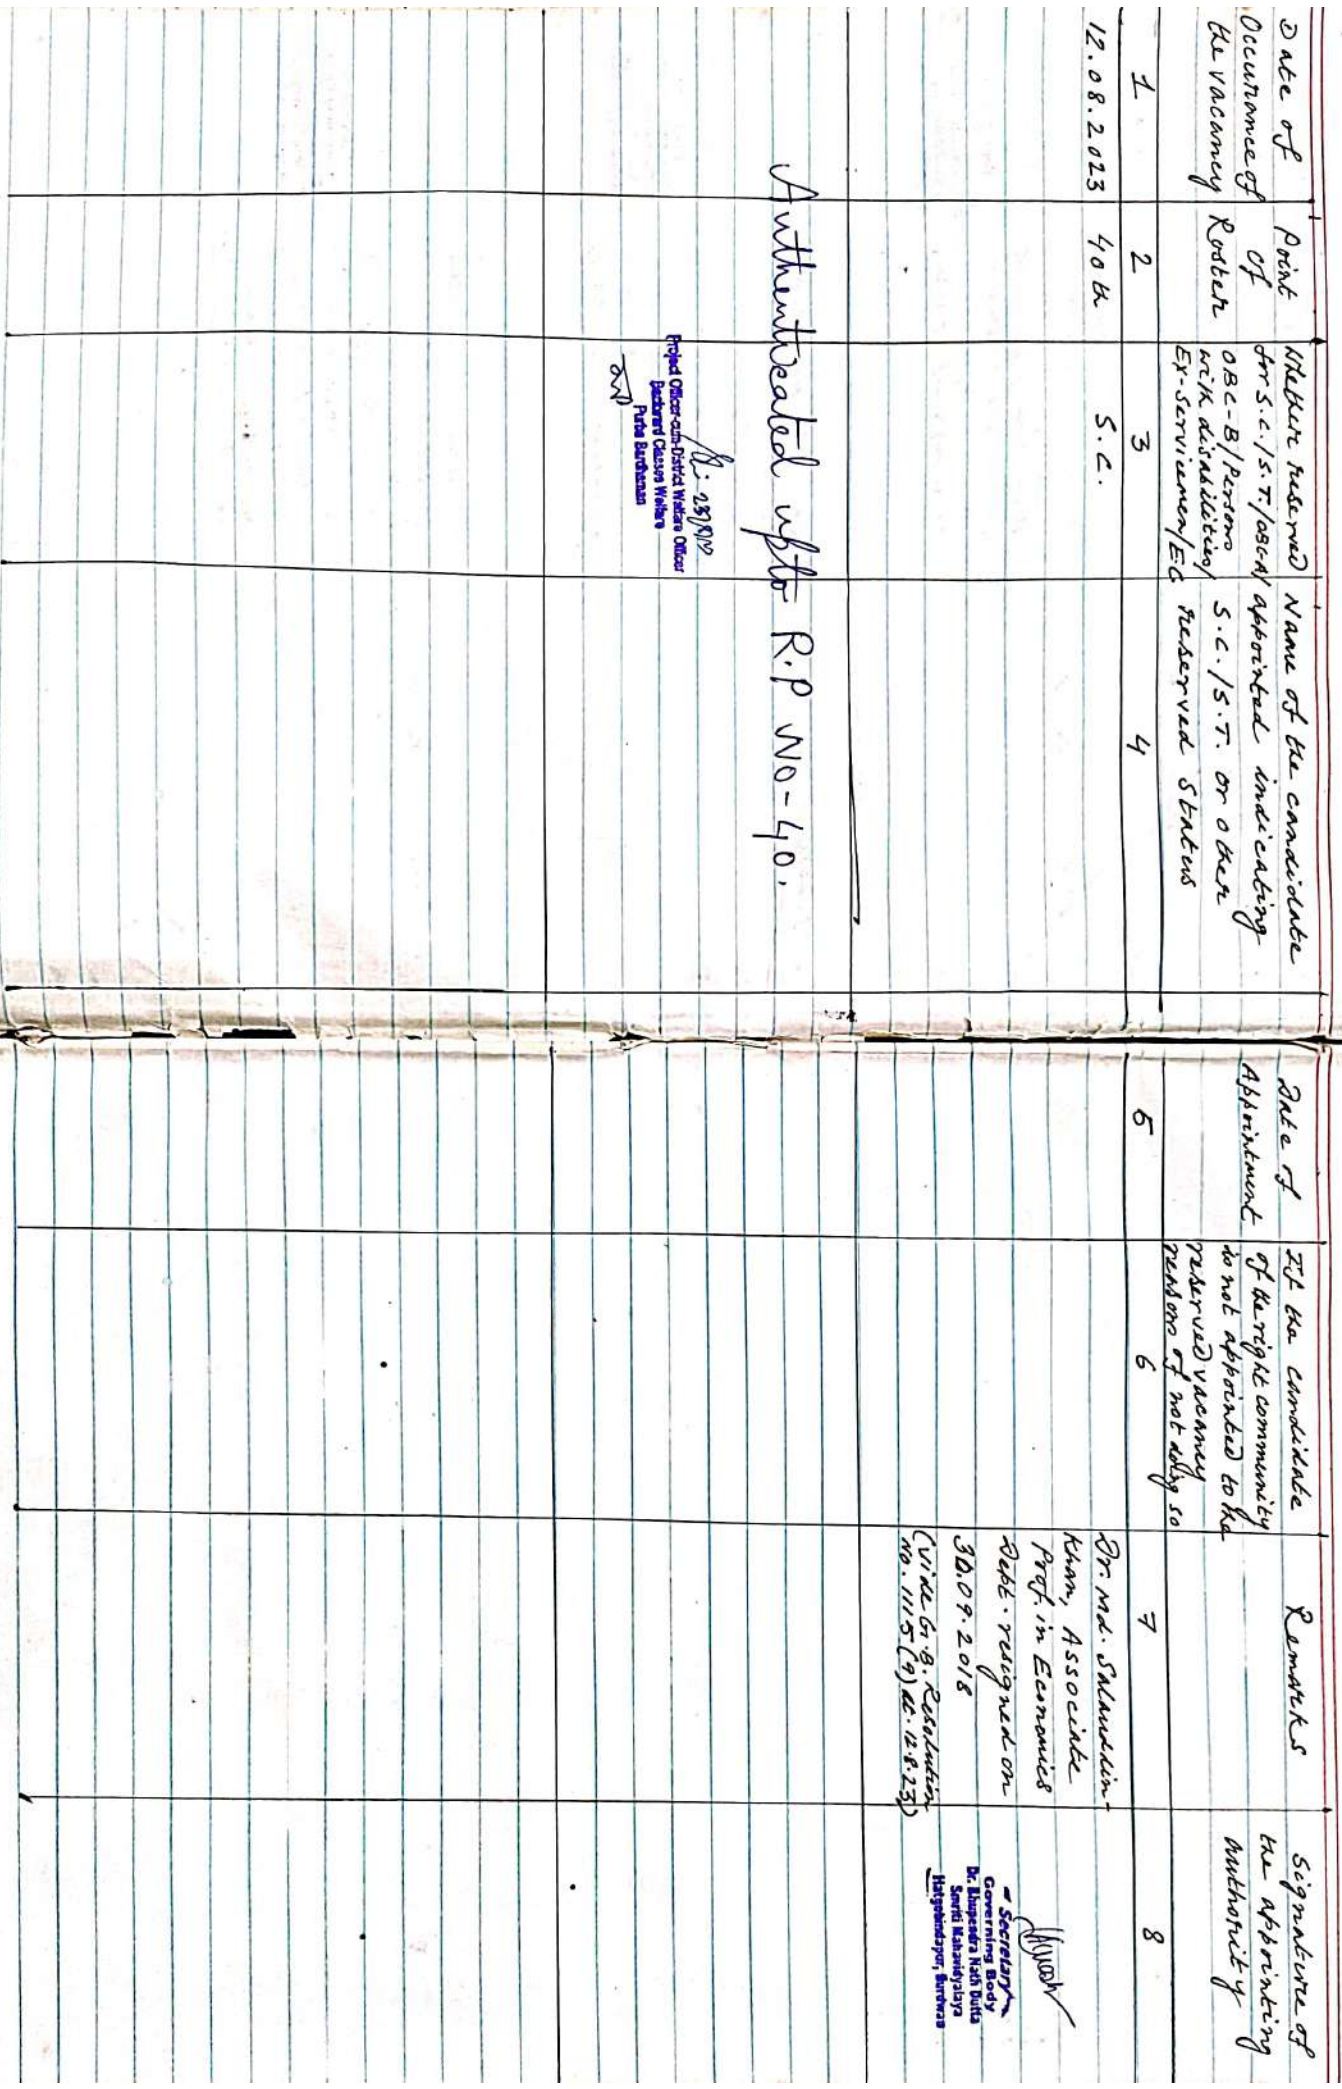 Date of
Occurrance of
the vacancy
Point
of
Roster
Whether reserved
for S.C./S.T./OBC-A/
OBC-B/Persons
with disabilities/
Ex-Servicemen/EC
Name of the candidate
appointed indicating
S.C./S.T. or other
reserved status
Date of
Appointment
If the candidate
of the right community
is not appointed to the
reserved vacancy
reasons of not doing so
Remarks
Signature of
the appointing
authority
1 2 3 4 5 6 7 8
12.08.2023 40th S.C.
Dr. Md. Salauddin
Khan, Associate
Prof. in Economics
Dept. resigned on
30.09.2018
(Vide G.B. Resolution
No. 1115(9) dt. 12.8.23)
Secretary
Governing Body
Dr. Bhupendra Nath Dutta
Smriti Mahavidyalaya
Hatgobindapur, Burdwan
Authenticated upto R.P NO-40.
Project Officer-cum-District Welfare Officer
Backward Classes Welfare
Purba Bardhaman